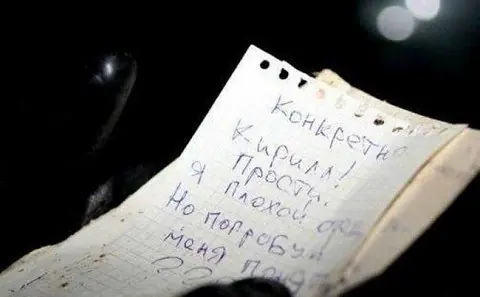 Конкретно
Кирилл!
Прости.
Я плохой
Но попробуй
меня понять
??